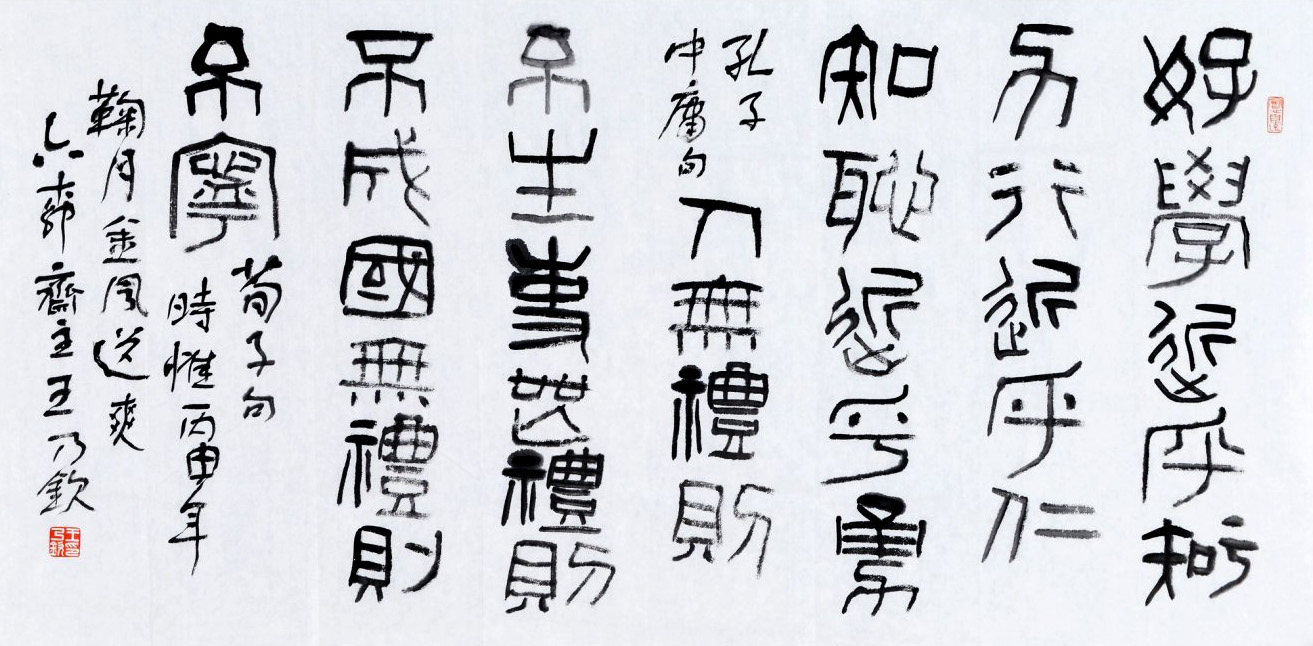 好學近乎智
力行近乎仁
知恥近乎勇
孔子
中庸句
人無禮則
不生事無禮則
不成國無禮則
不寧
荀子句
時惟丙申年
鞠月金風送爽
齋主王乃欽
王乃欽印